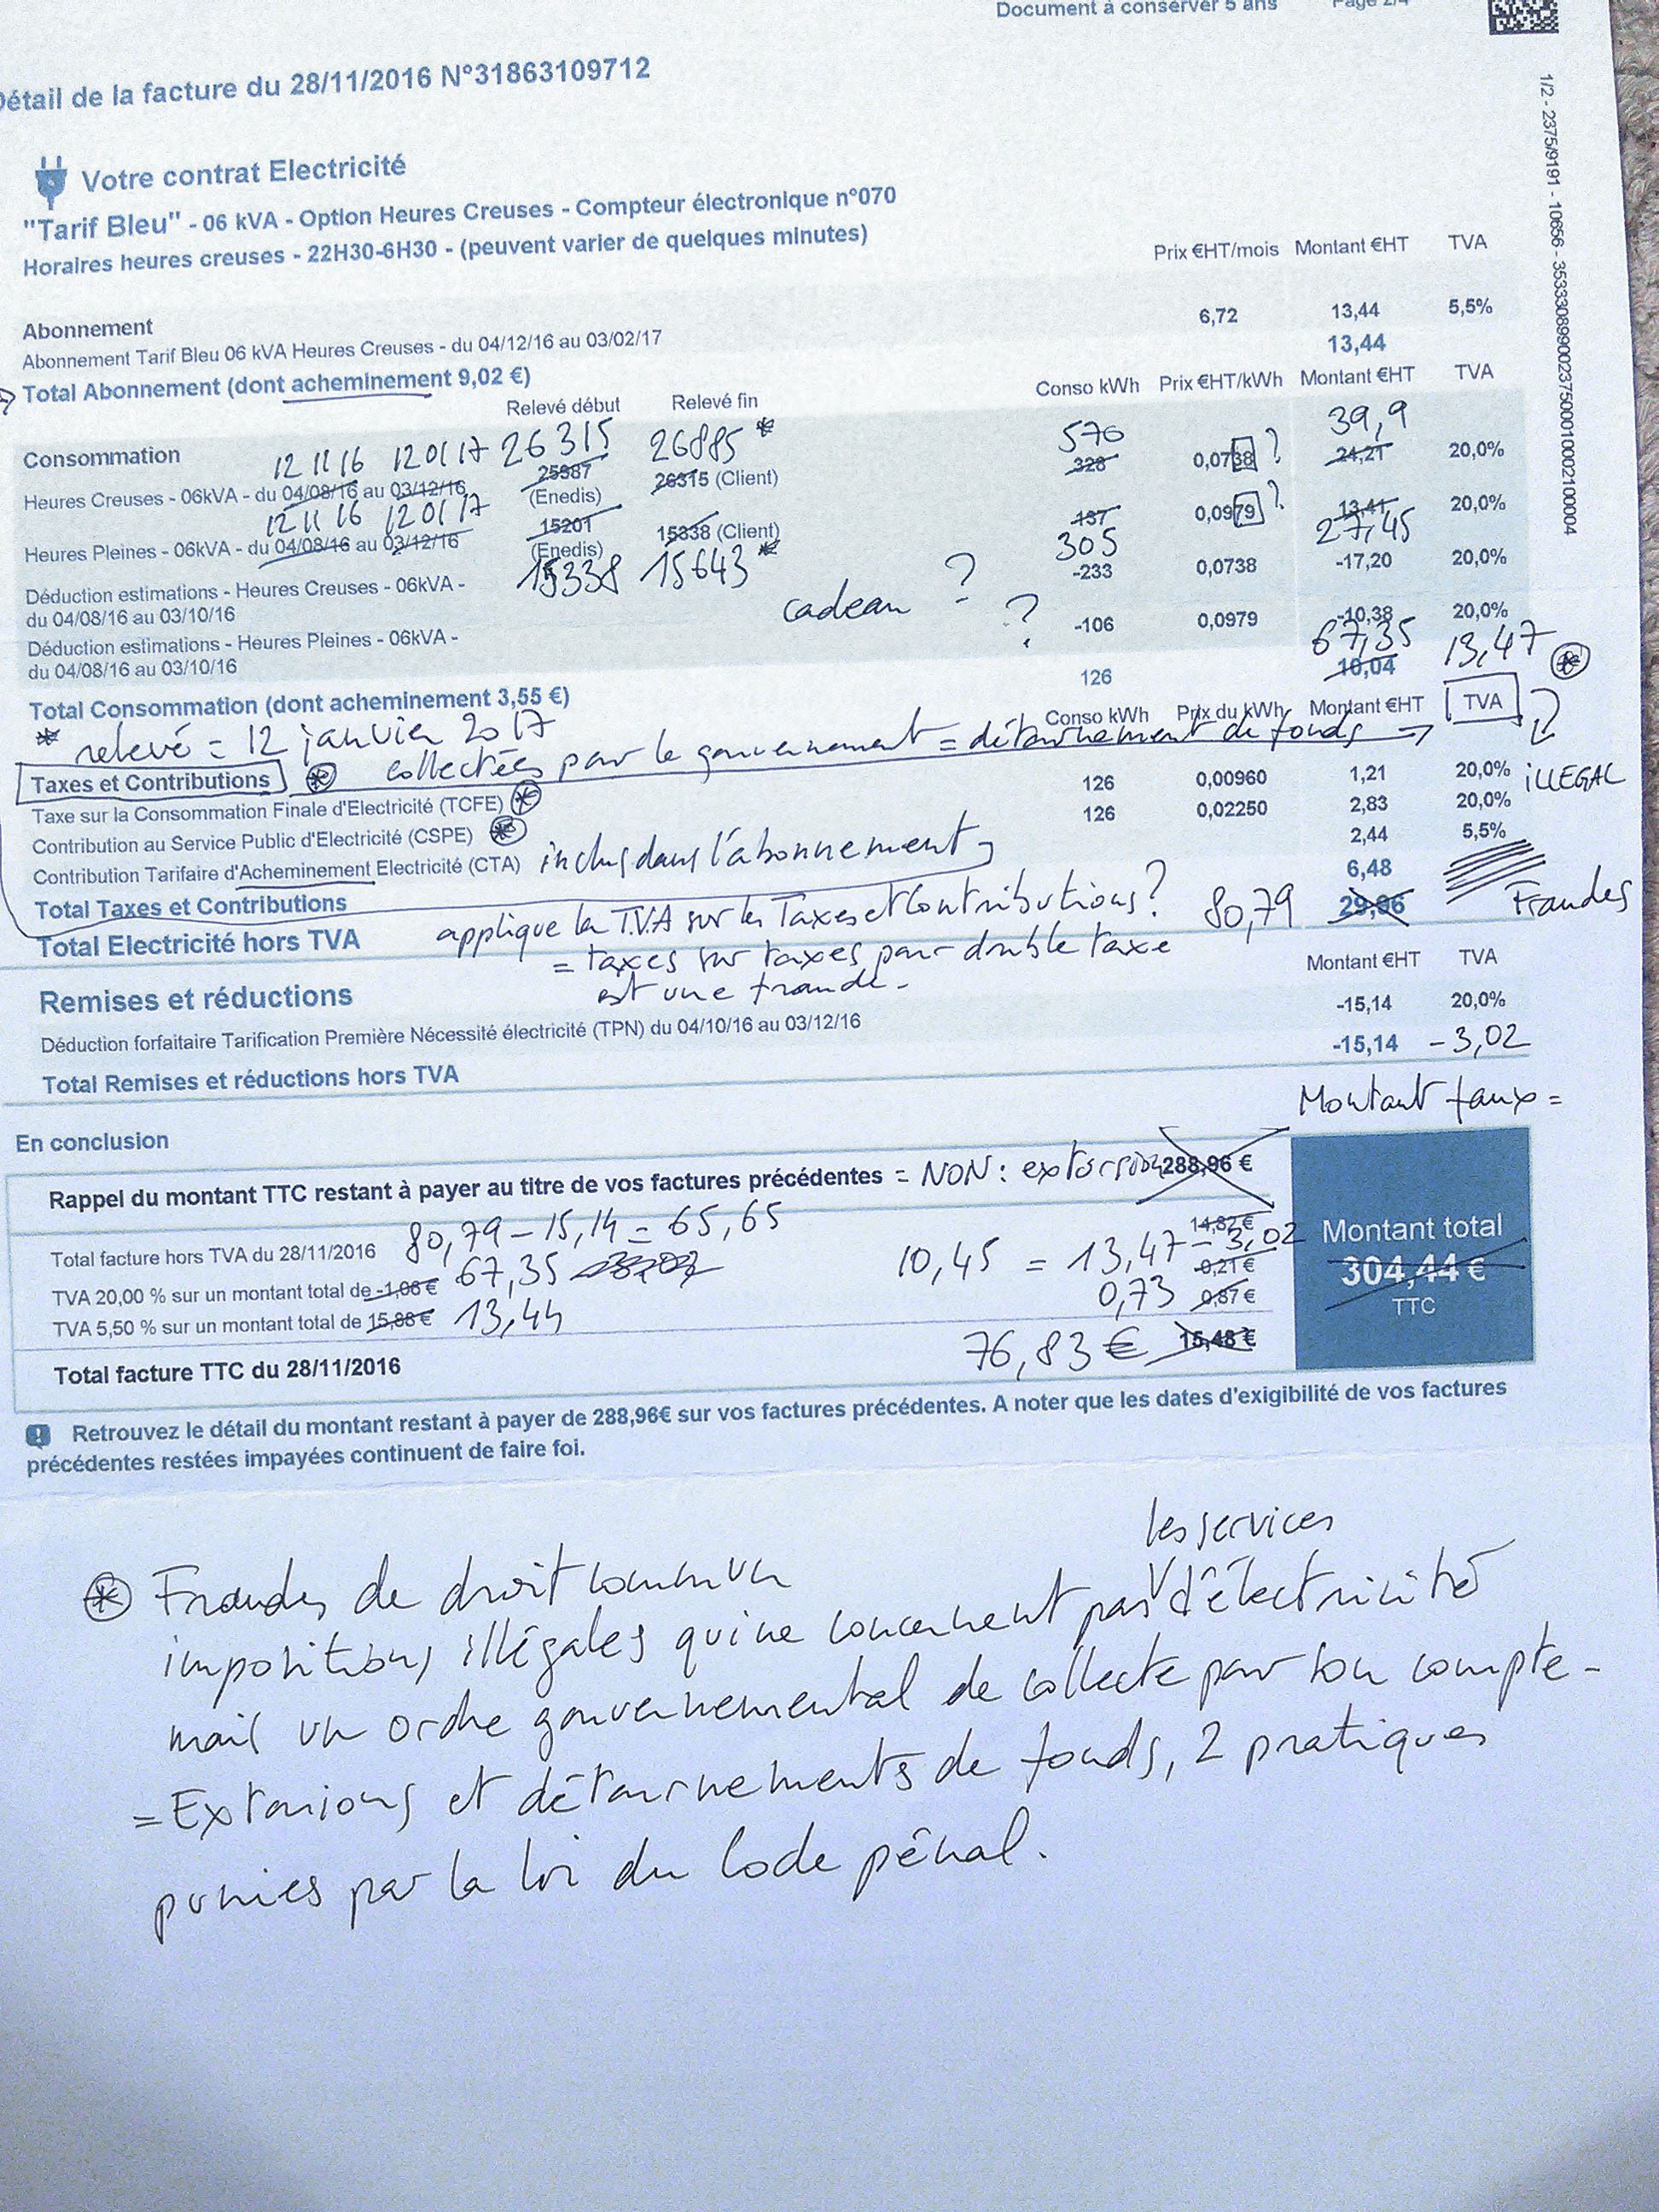 Document à conserver 5 ans Page 2/4
Détail de la facture du 28/11/2016 N°31863109712
1/2 - 2375/9191 - 10656 - 353330899002375000100021000004
Votre contrat Electricité
"Tarif Bleu" - 06 kVA - Option Heures Creuses - Compteur électronique n°070
Horaires heures creuses - 22H30-6H30 - (peuvent varier de quelques minutes)
Prix €HT/mois Montant €HT TVA
Abonnement
Abonnement Tarif Bleu 06 kVA Heures Creuses - du 04/12/16 au 03/02/17 6,72 13,44 5,5%
Total Abonnement (dont acheminement 9,02 €) 13,44
Relevé début Relevé fin Conso kWh Prix €HT/kWh Montant €HT TVA
Consommation
12 11 16 12 01 17 26315 26885 * 570 39,9
Heures Creuses - 06kVA - du 04/08/16 au 03/12/16 25987 (Enedis) 26315 (Client) 328 0,0738 ? 24,21 20,0%
12 11 16 12 01 17
Heures Pleines - 06kVA - du 04/08/16 au 03/12/16 15201 (Enedis) 15338 (Client) 137 0,0979 ? 13,41 20,0%
15338 15643 * 305 27,45
Déduction estimations - Heures Creuses - 06kVA - du 04/08/16 au 03/10/16 -233 0,0738 -17,20 20,0%
cadeau ? ?
Déduction estimations - Heures Pleines - 06kVA - du 04/08/16 au 03/10/16 -106 0,0979 -10,38 20,0%
67,35 13,47 *
Total Consommation (dont acheminement 3,55 €) 126 10,04
* relevé = 12 janvier 2017
Conso kWh Prix du kWh Montant €HT TVA
Taxes et Contributions * collectées par le gouvernement = détournement de fonds
Taxe sur la Consommation Finale d'Electricité (TCFE) * 126 0,00960 1,21 20,0% iLLEGAL
Contribution au Service Public d'Electricité (CSPE) * 126 0,02250 2,83 20,0%
Contribution Tarifaire d'Acheminement Electricité (CTA) inclus dans l'abonnement 2,44 5,5%
Total Taxes et Contributions 6,48
Total Electricité hors TVA 80,79 29,96 Fraudes
applique la T.V.A sur les Taxes et Contributions ?
= taxes sur taxes par double taxe
est une fraude.
Remises et réductions Montant €HT TVA
Déduction forfaitaire Tarification Première Nécessité électricité (TPN) du 04/10/16 au 03/12/16 -15,14 20,0%
Total Remises et réductions hors TVA -15,14 -3,02
Montant faux =
En conclusion
Rappel du montant TTC restant à payer au titre de vos factures précédentes = NON : extorsion 288,96 €
Total facture hors TVA du 28/11/2016 80,79 - 15,14 = 65,65 14,82 €
TVA 20,00 % sur un montant total de -1,06 € 67,35 10,45 = 13,47 - 3,02 -0,21 €
TVA 5,50 % sur un montant total de 15,88 € 13,44 0,73 0,87 €
Total facture TTC du 28/11/2016 76,83 € 15,48 €
Montant total
304,44 €
TTC
Retrouvez le détail du montant restant à payer de 288,96€ sur vos factures précédentes. A noter que les dates d'exigibilité de vos factures
précédentes restées impayées continuent de faire foi.
les services
* Fraudes de droit commun
impositions illégales qui ne concernent pas d'électricité
mais un ordre gouvernemental de collecte par son compte -
= Extorsions et détournements de fonds, 2 pratiques
punies par la loi du Code pénal.